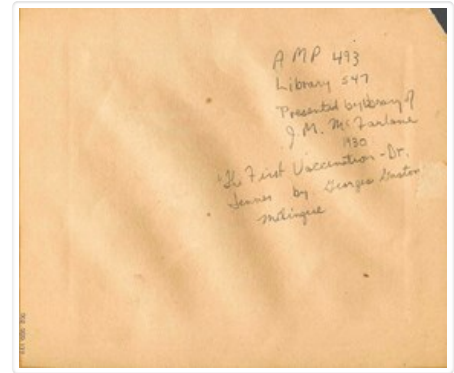 AMP 493
Library 547
Presented by library of
J. M. McFarlane
1930
"The First Vaccination - Dr.
Jenner by Georges Gaston
Melingue